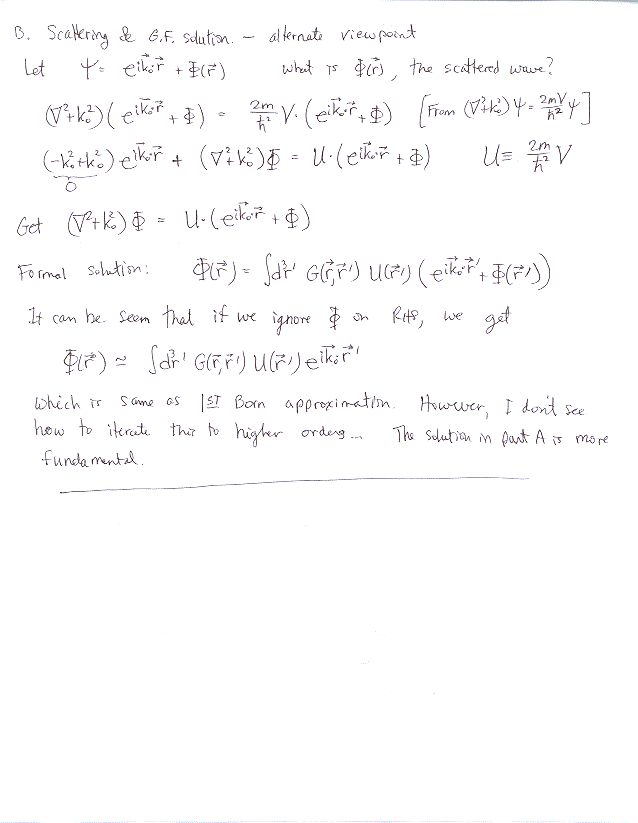 B. Scattering & G.F. solution. — alternate viewpoint
Let ψ = e^{i\vec{k}_0·\vec{r}} + Φ(\vec{r}) what is Φ(\vec{r}), the scattered wave?
(∇²+k₀²)(e^{i\vec{k}_0·\vec{r}} + Φ) = \frac{2m}{ħ²} V·(e^{i\vec{k}_0·\vec{r}} + Φ) [From (∇²+k₀²)ψ = \frac{2mV}{ħ²} ψ]
(-k₀²+k₀²) e^{i\vec{k}_0·\vec{r}} + (∇²+k₀²)Φ = U·(e^{i\vec{k}_0·\vec{r}} + Φ) U ≡ \frac{2m}{ħ²} V
0
Get (∇²+k₀²)Φ = U·(e^{i\vec{k}_0·\vec{r}} + Φ)
Formal solution: Φ(\vec{r}) = ∫d³r' G(\vec{r},\vec{r}') U(\vec{r}') (e^{i\vec{k}_0·\vec{r}'} + Φ(\vec{r}'))
It can be seem that if we ignore Φ on RHS, we get
Φ(\vec{r}) ≈ ∫d³r' G(\vec{r},\vec{r}') U(\vec{r}') e^{i\vec{k}_0·\vec{r}'}
which is same as 1ST Born approximation. However, I don't see
how to iterate this to higher orders... The solution in part A is more
fundamental.